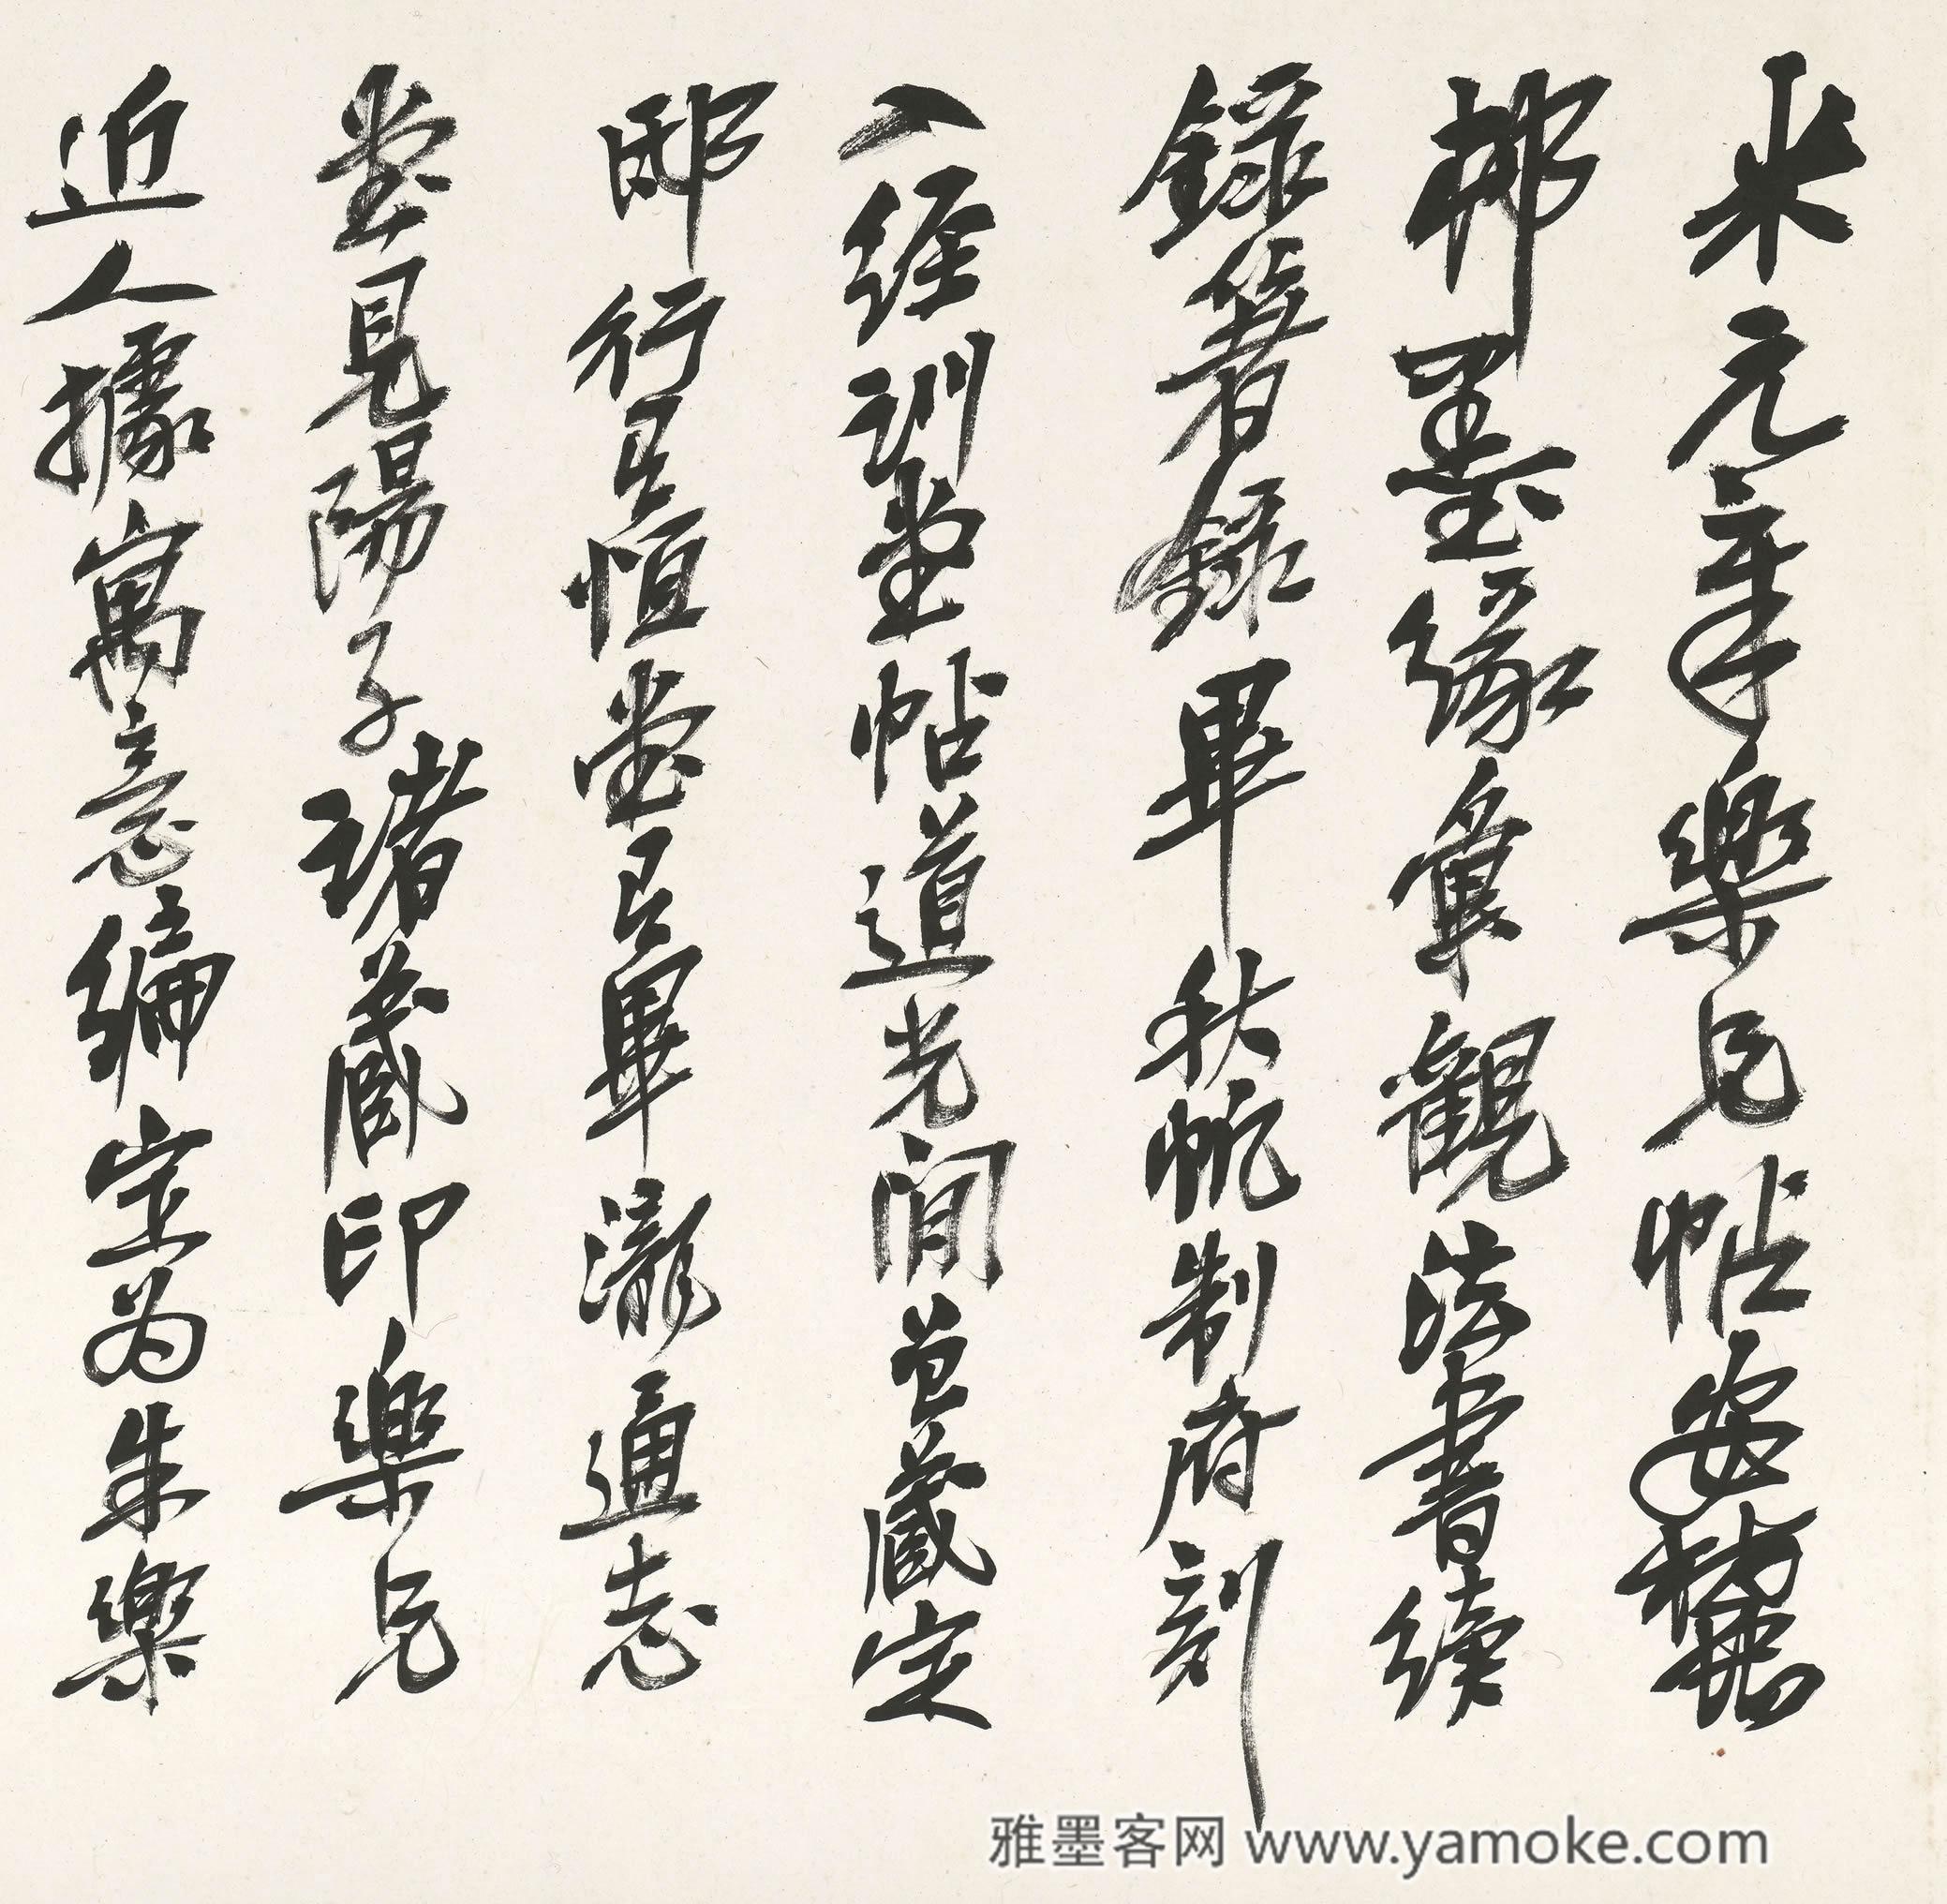 米元章樂兄帖安麓
邨墨緣彙觀法書續
錄箸錄畢秋帆制府刻
入經訓堂帖道光間曾藏定
邸行有恒堂有畢瀧通志
堂見陽子諸藏印樂兄
近人據寓意編定為朱樂
雅墨客网 www.yamoke.com